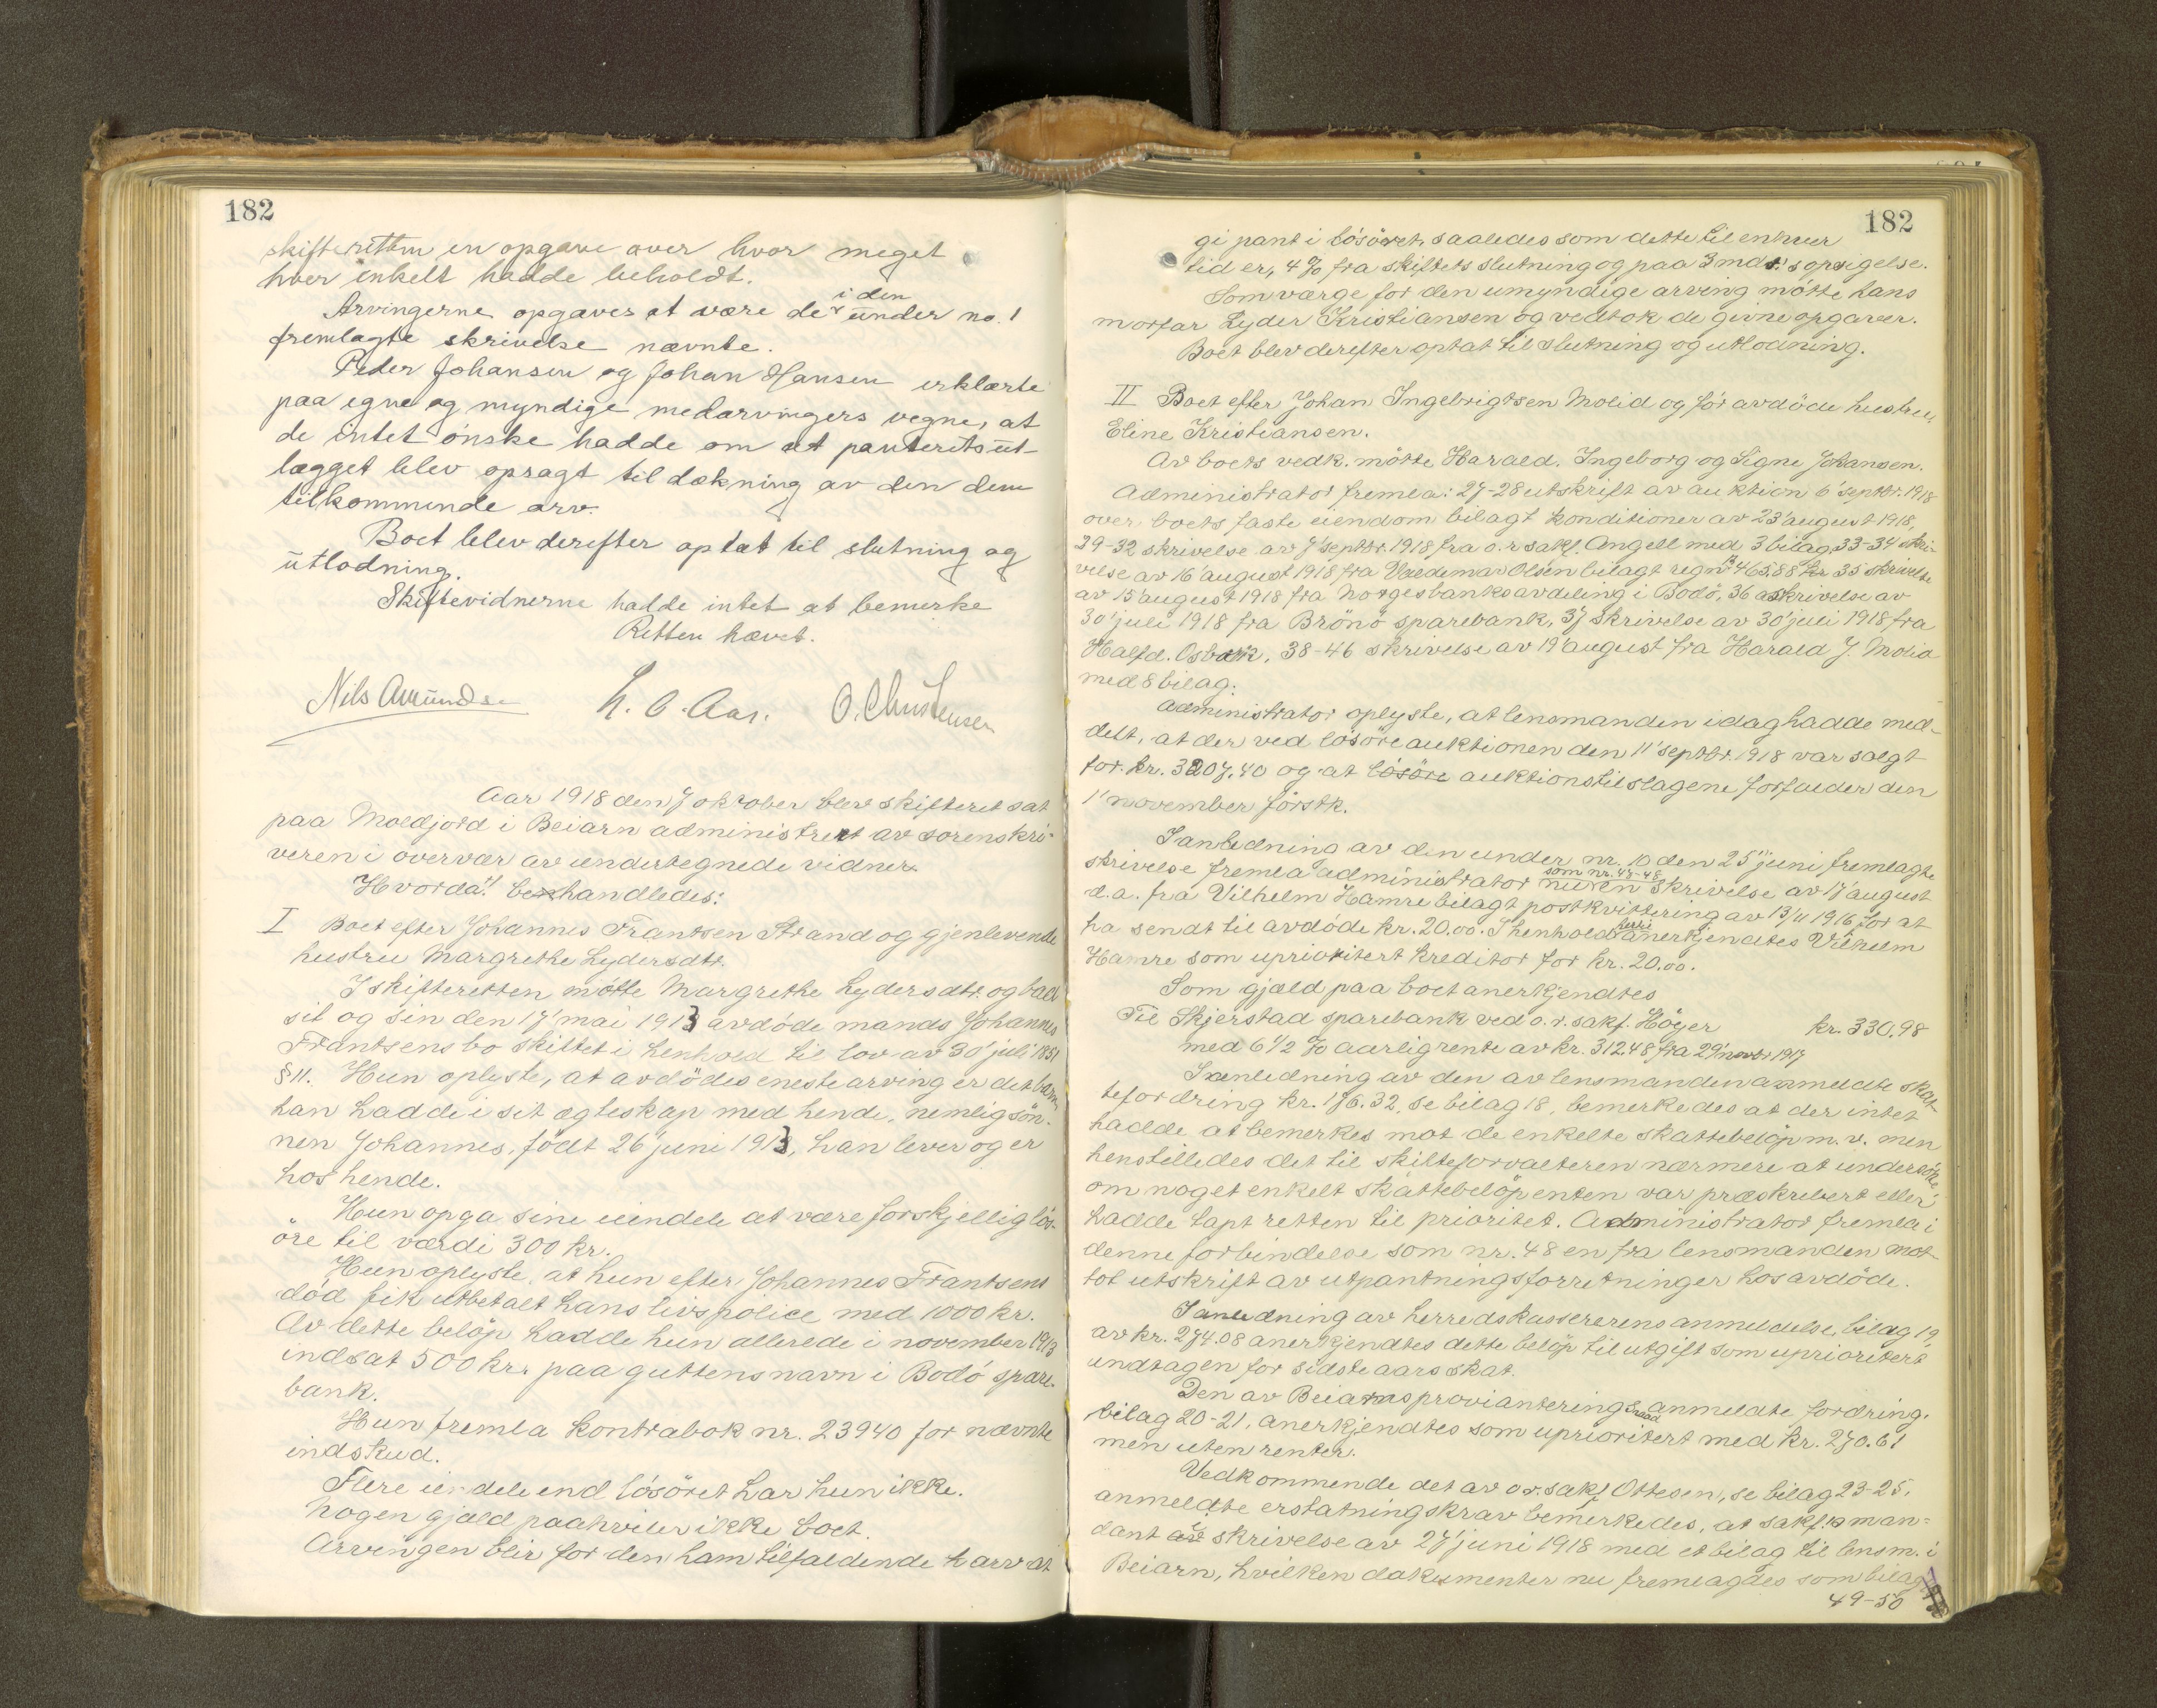 182
skifteretten en opgave over hvor meget
hver enkelt hadde beholdt.
Arvingerne opgaves at være de i den under no. 1
fremlagte skrivelse nævnte.
Peder Johansen og Johan Hansen erklærte
paa egne og myndige medarvingers vegne, at
de intet ønske hadde om at panterets ut-
lægget blev opsagt til dækning av den dem
tilkommende arv.
Boet blev derefter optat til slutning og
utlodning.
Skiftevidnerne hadde intet at bemerke
Retten hævet.
Nils Amundsen H. O. Aas. O. Christensen
Aar 1918 den 7 oktober blev skifteret sat
paa Moldjord i Beiarn administrert av sorenskri-
veren i overvær av undertegnede vidner.
Hvorda! behandledes:
I Boet efter Johannes Frantsen Strand og gjenlevende
hustru Margrethe Lydersdtr.
I skifteretten møtte Margrethe Lydersdtr. og bad
sit og sin den 17' mai 1913 avdöde mands Johannes
Frantsens bo skiftet i henhold til lov av 30' juli 1851
§ 11. Hun oplyste, at avdödes eneste arving er det barn
han hadde i sit ægteskap med hende, nemlig søn-
nen Johannes, födt 26' juni 1913, han lever og er
hos hende.
Hun opga sine eiendele at være forskjellig lös-
öre til værdi 300 kr.
Hun oplyste, at hun efter Johannes Frantsens
död fik utbetalt hans livspolice med 1000 kr.
Av dette belöp hadde hun allerede i november 1913
indsat 500 kr. paa guttens navn i Bodö spare-
bank.
Hun fremla kontrabok nr. 23940 for nævnte
indskud.
Flere eiendele end lösöret har hun ikke.
Nogen gjæld paahviler ikke boet.
Arvingen blir for den ham tilfaldende arv at
182
gi pant i lösöret, saaledes som dette til enhver
tid er, 4 % fra skiftets slutning og paa 3 mdr's opsigelse.
Som værge for den umyndige arving mötte hans
morfar Lyder Kristiansen og vedtok de givne opgaver.
Boet blev derefter optat til slutning og utlodning.
II Boet efter Johan Ingebrigtsen Molid og för avdöde hustru
Eline Kristiansen.
Av boets vedk. mötte Harald, Ingeborg og Signe Johansen.
Administrator fremla: 27-28 utskrift av auktion 6' septbr. 1918
over boets faste eiendom bilagt konditioner av 23' august 1918,
29-32 skrivelse av 7' septbr. 1918 fra o.r.sakf. Angell med 3 bilag, 33-34 skri-
velse av 16' august 1918 fra Valdemar Olsen bilagt regn. 465,88 kr. 35 skrivelse
av 15' august 1918 fra Norges banks avdeling i Bodö, 36 skrivelse av
30' juli 1918 fra Brönö sparebank, 37 skrivelse av 30' juli 1918 fra
Halfd. Osbak, 38-46 skrivelse av 19' august fra Harald J. Molid
med 8 bilag.
Administrator oplyste, at lensmanden idag hadde med-
delt, at der ved lösöreauktionen den 11' septbr. 1918 var solgt
for kr. 3207,40 og at lösöre auktionstilslagene forfalder den
1' november förstk.
I anledning av den under nr. 10 den 25' juni fremlagte
skrivelse fremla administrator som nr. 47-48 nu en skrivelse av 17' august
d.a. fra Vilhelm Hamre bilagt postkvittering av 13/11 1916 for at
ha sendt til avdöde kr. 20.00. I henhold hertil anerkjendtes Vilhelm
Hamre som uprioritert kreditor for kr. 20.00.
Som gjæld paa boet anerkjendtes
Til Skjerstad sparebank ved o.r. sakf. Höyer kr. 330,98
med 6 1/2 % aarlig rente av kr. 312.48 fra 29' novbr 1917
I anledning av den av lensmanden anmeldte skat-
tefordring kr. 176.32, se bilag 18, bemerkedes at der intet
hadde at bemerkes mot de enkelte skattebelöp m. v. men
henstilledes det til skifteforvalteren nærmere at undersöke
om noget enkelt skattebelöp enten var præskribert eller
hadde tapt retten til prioritet. Administrator fremla i
denne forbindelse som nr. 48 en fra lensmanden mot-
tat utskrift av utpantningsforretninger hos avdöde.
I anledning av herredskassererens anmeldelse, bilag 19
av kr. 274.08 anerkjendtes dette belöp til utgift som uprioritert
undtagen for sidste aars skat.
Den av Beiarns provianteringsraad anmeldte fordring,
bilag 20-21, anerkjendtes som uprioritert med kr. 270.61
men uten renter.
Vedkommende det av o.r.sakf. Ottesen, se bilag 23-25,
anmeldte erstatningskrav bemerkedes, at sakf.s man-
dant i skrivelse av 27' juni 1918 med et bilag til lensm. i
Beiarn, hvilken dokumenter nu fremlagdes som bilag
49-50